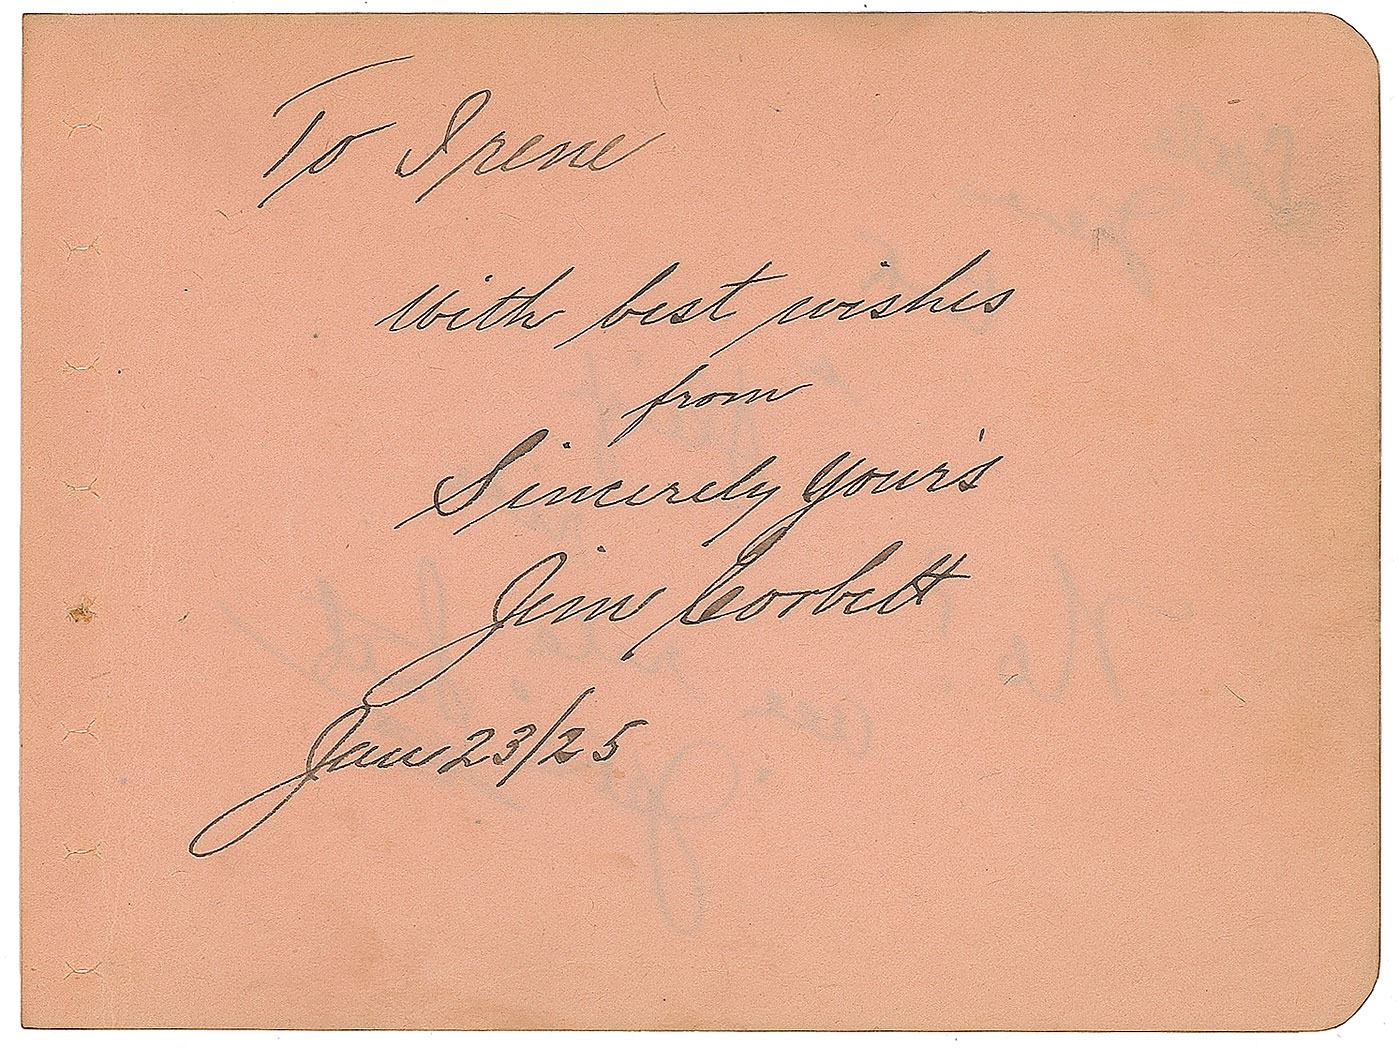 To Irene
with best wishes
from
Sincerely Your's
Jim Corbett
Jan 23/25